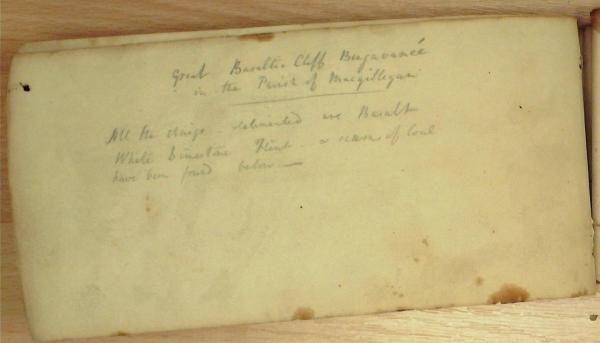 Great Basaltic Cliff Benyavancé
in the Parish of Macgilligan
All the strips delineated are Basalt
White Limestone Flint & seams of Coal
have been found below —